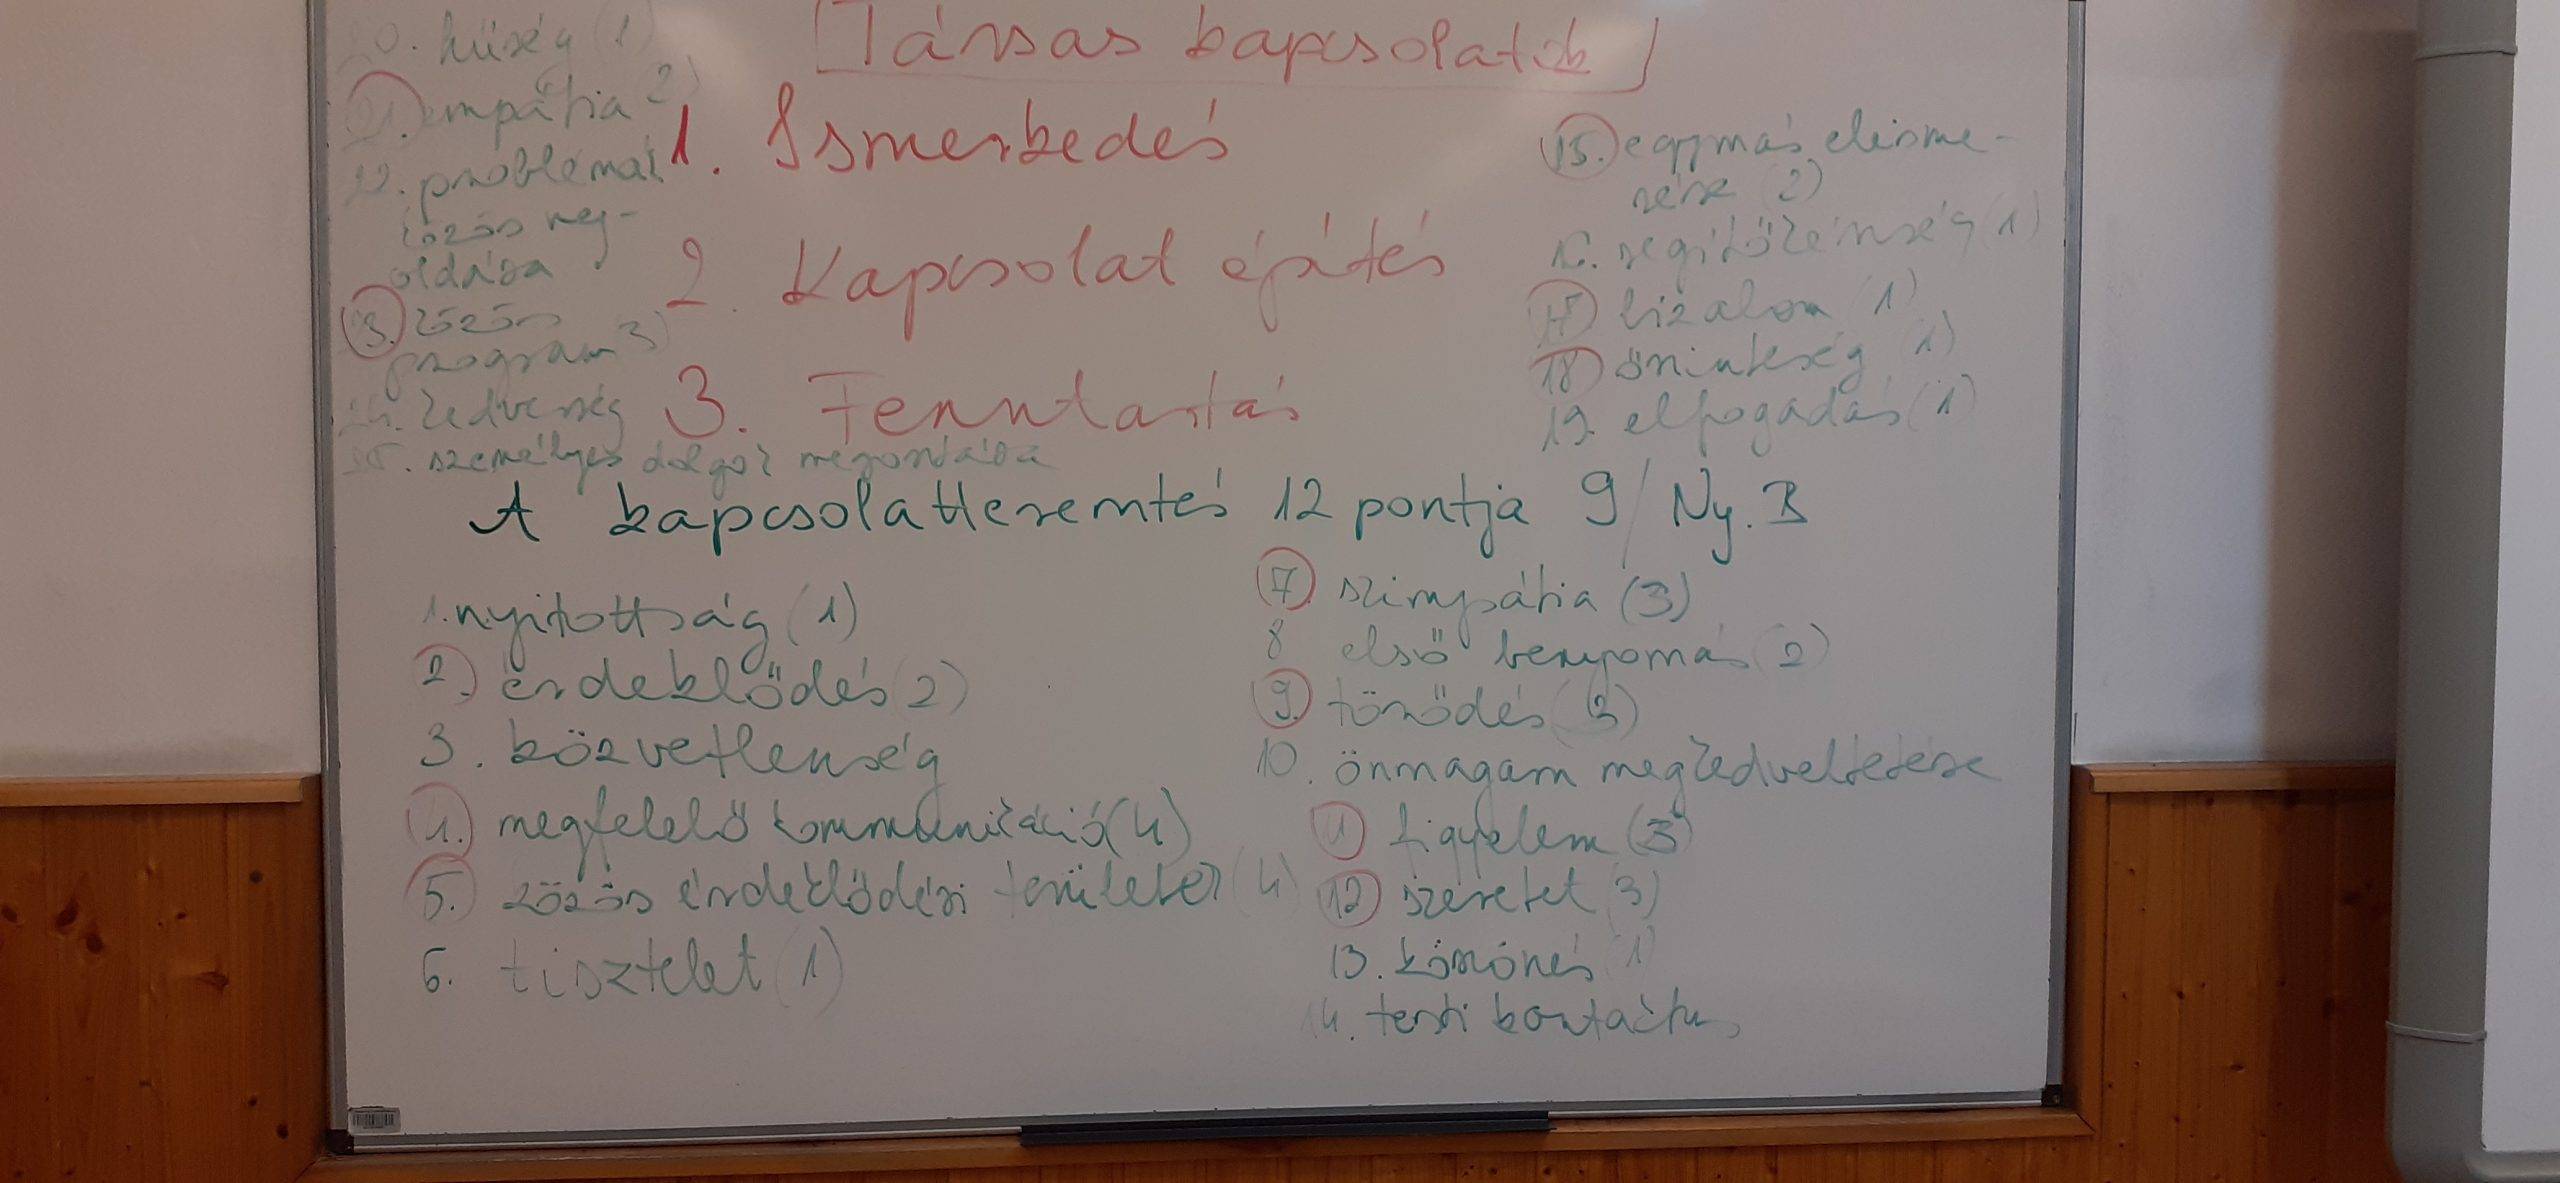 Társas kapcsolatok
1. Ismerkedés
2. Kapcsolat építés
3. Fenntartás
20. hűség (1)
21. empátia 2)
22. problémák
közös meg-
oldása
3. közös
program 3)
24. kedvesség
25. személyes dolgok megosztása
15. egymás elisme-
rése (2)
16. segítőkészség (1)
17 bizalom (1)
18 őszinteség 1)
19. elfogadás (1)
A kapcsolatteremtés 12 pontja 9/Ny. B
1. nyitottság (1)
2. érdeklődés (2)
3. közvetlenség
4. megfelelő kommunikáció (4)
5. közös érdeklődési területek (4)
6. tisztelet (1)
7. szimpátia (3)
8 első benyomás (2)
9. törődés (3)
10. önmagam megkedveltetése
11 figyelem (3)
12 szeretet (3)
13. köszönés (1)
14. testi kontaktus